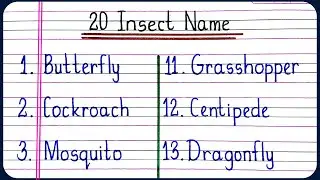 20 Insect Name
1. Butterfly
2. Cockroach
3. Mosquito
11. Grasshopper
12. Centipede
13. Dragonfly